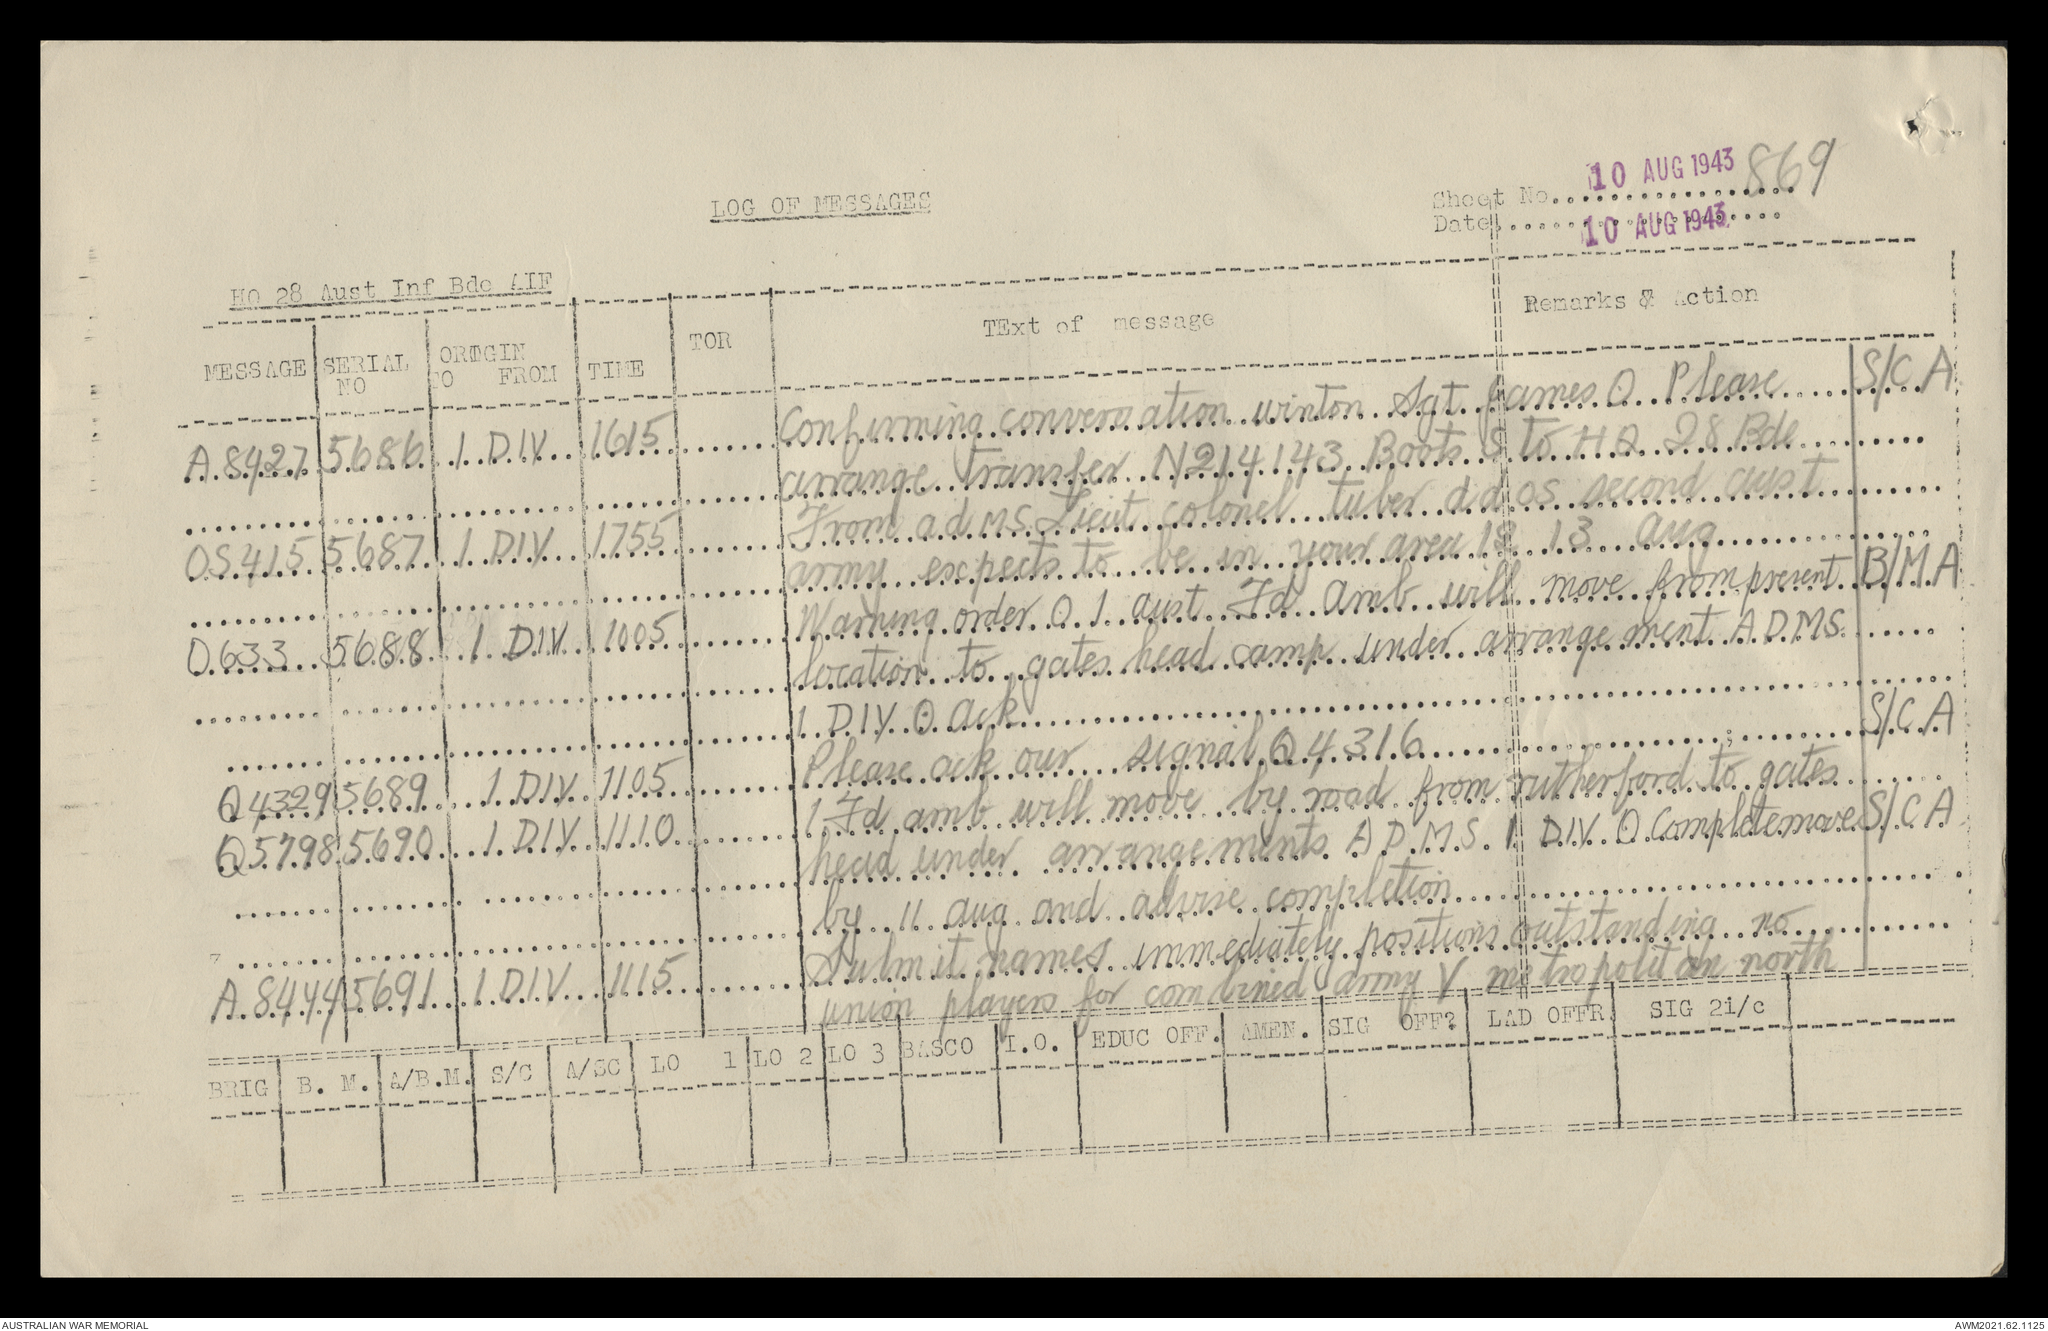 10 AUG 1943 869
LOG OF MESSAGES
Sheet No.
Date 10 AUG 1943
HQ 28 Aust Inf Bde AIF
MESSAGE SERIAL NO ORIGIN TO FROM TIME TOR TExt of message Remarks & Action
A.8427 5686 1 DIV 1615 Confirming conversation winton Sgt James O Please S/C A
arrange transfer N214143 Boots S to HQ 28 Bde
OS415 5687 1 DIV 1755 From a d M S Lieut colonel tuber d d o s second aust
army expects to be in your area 12 13 aug
O.633 5688 1 DIV 1005 Warning order O 1 aust Fd amb will move from present B/M A
location to gates head camp under arrangement A D M S
1 DIV O Ack
Q4329 5689 1 DIV 1105 Please ack our signal Q4316 S/C A
Q5798 5690 1 DIV 1110 1 Fd amb will move by road from rutherford to gates
head under arrangements A D M S 1 DIV O Complete move S/C A
by 11 aug and advise completion
A.8444 5691 1 DIV 1115 Submit names immediately positions outstanding no
union players for combined army V metropolitan north
BRIG B. M. A/B.M. S/C A/SC LO 1 LO 2 LO 3 BASCO I.O. EDUC OFF. AMEN. SIG OFF? LAD OFFR SIG 2i/c
AUSTRALIAN WAR MEMORIAL AWM2021.62.1125